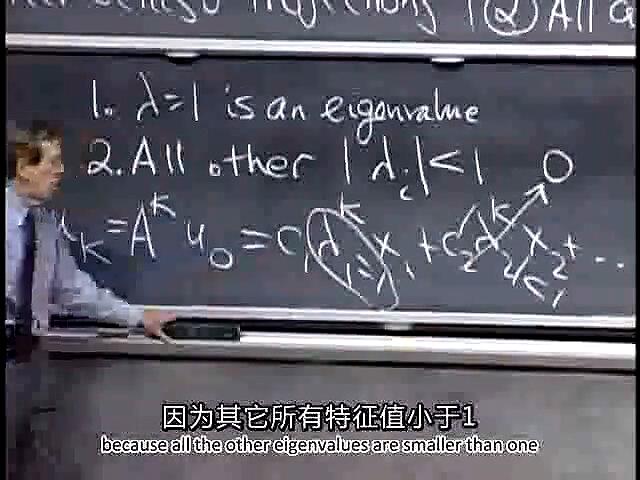 projections (2) All
1. λ=1 is an eigenvalue
2. All other |λᵢ|<1 0
u_K = A^K u_0 = c_1 λ_1^K x_1 + c_2 λ_2^K x_2 + ...
=1 <1
因为其它所有特征值小于1
because all the other eigenvalues are smaller than one